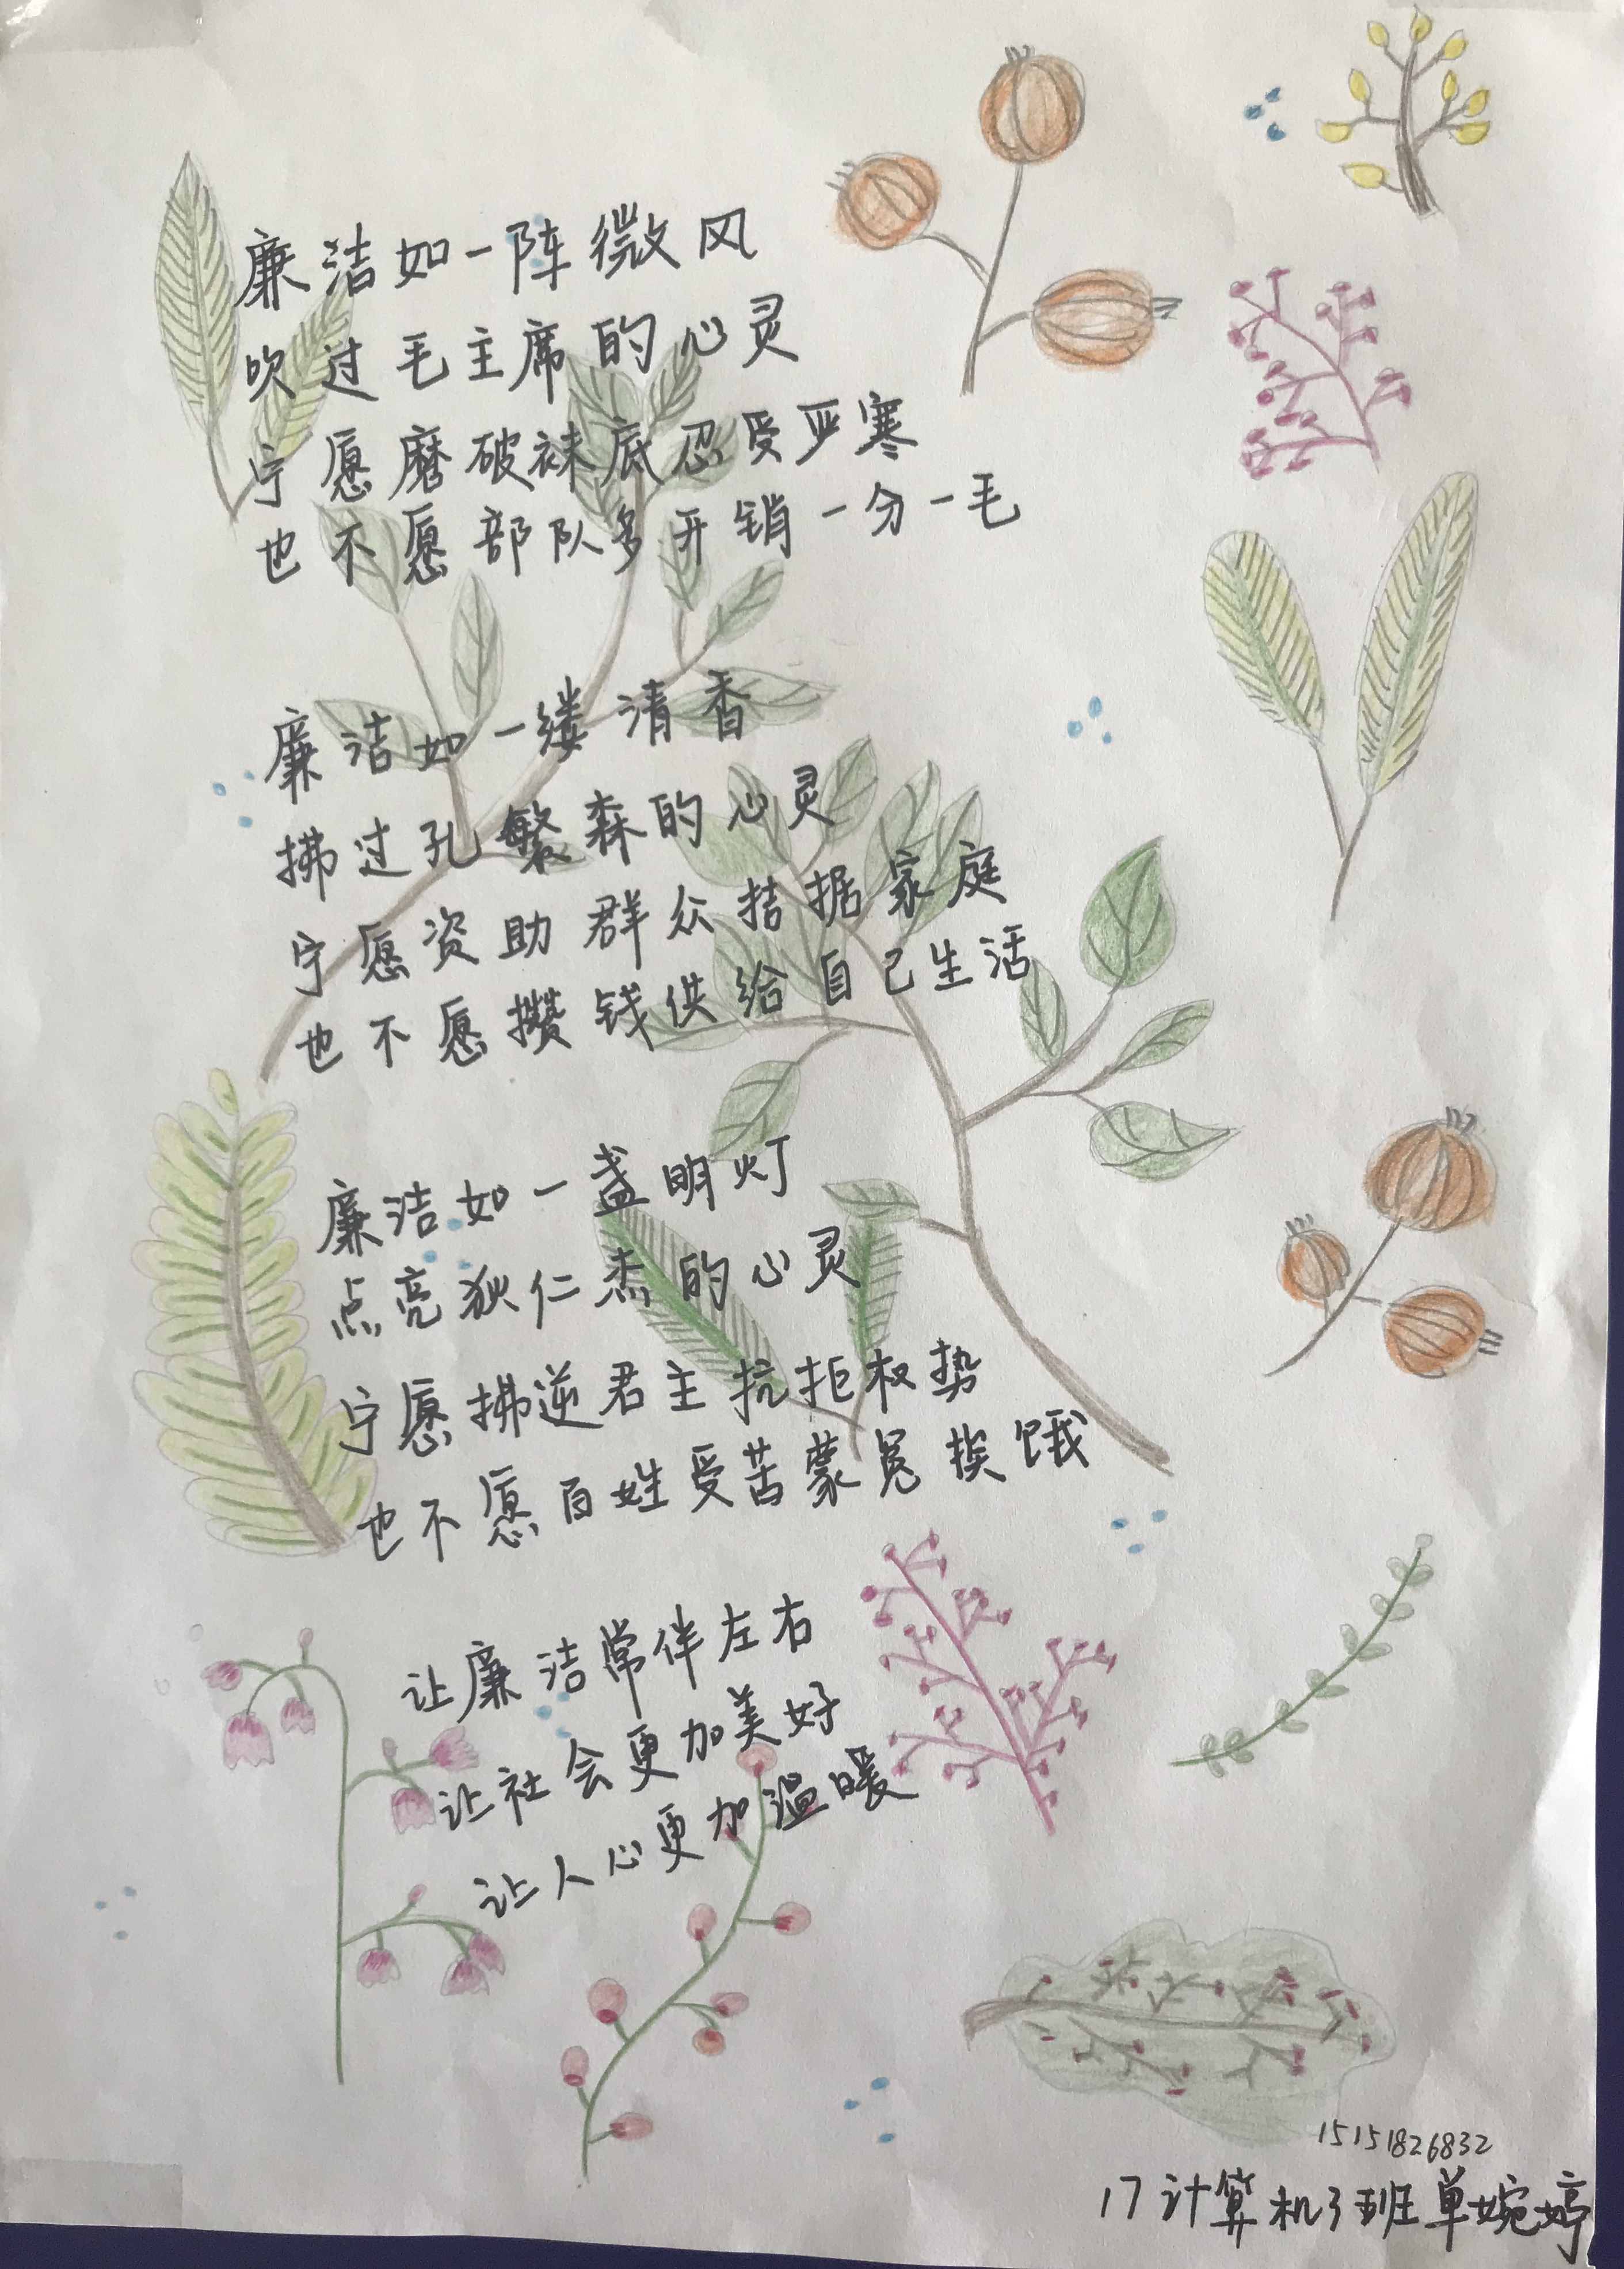 廉洁如一阵微风
吹过毛主席的心灵
宁愿磨破袜底忍受严寒
也不愿部队多开销一分一毛
廉洁如一缕清香
拂过孔繁森的心灵
宁愿资助群众拮据家庭
也不愿攒钱供给自己生活
廉洁如一盏明灯
点亮狄仁杰的心灵
宁愿拂逆君主抗拒权势
也不愿百姓受苦蒙冤挨饿
让廉洁常伴左右
让社会更加美好
让人心更加温暖
15151826832
17计算机3班单婉婷